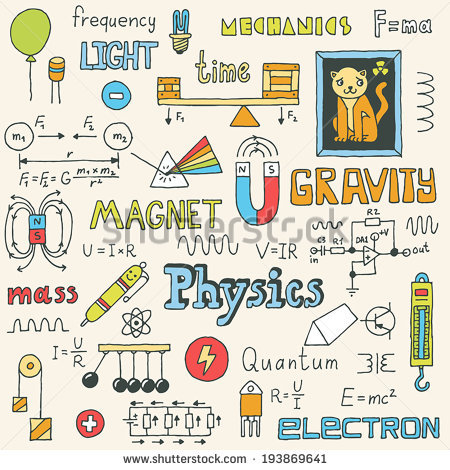 frequency
MECHANICS
F=ma
LIGHT
time
F₁
F₂
m₁
F₁
F₂
m₂
r
F₁=F₂=G m₁×m₂/r²
N
S
GRAVITY
MAGNET
N
S
U=I×R
V=IR
R2
C3
R1
DA1
in
out
mass
Physics
shutterstock
I=U/R
Quantum
R=U/I
E=mc²
ELECTRON
www.shutterstock.com · 193869641